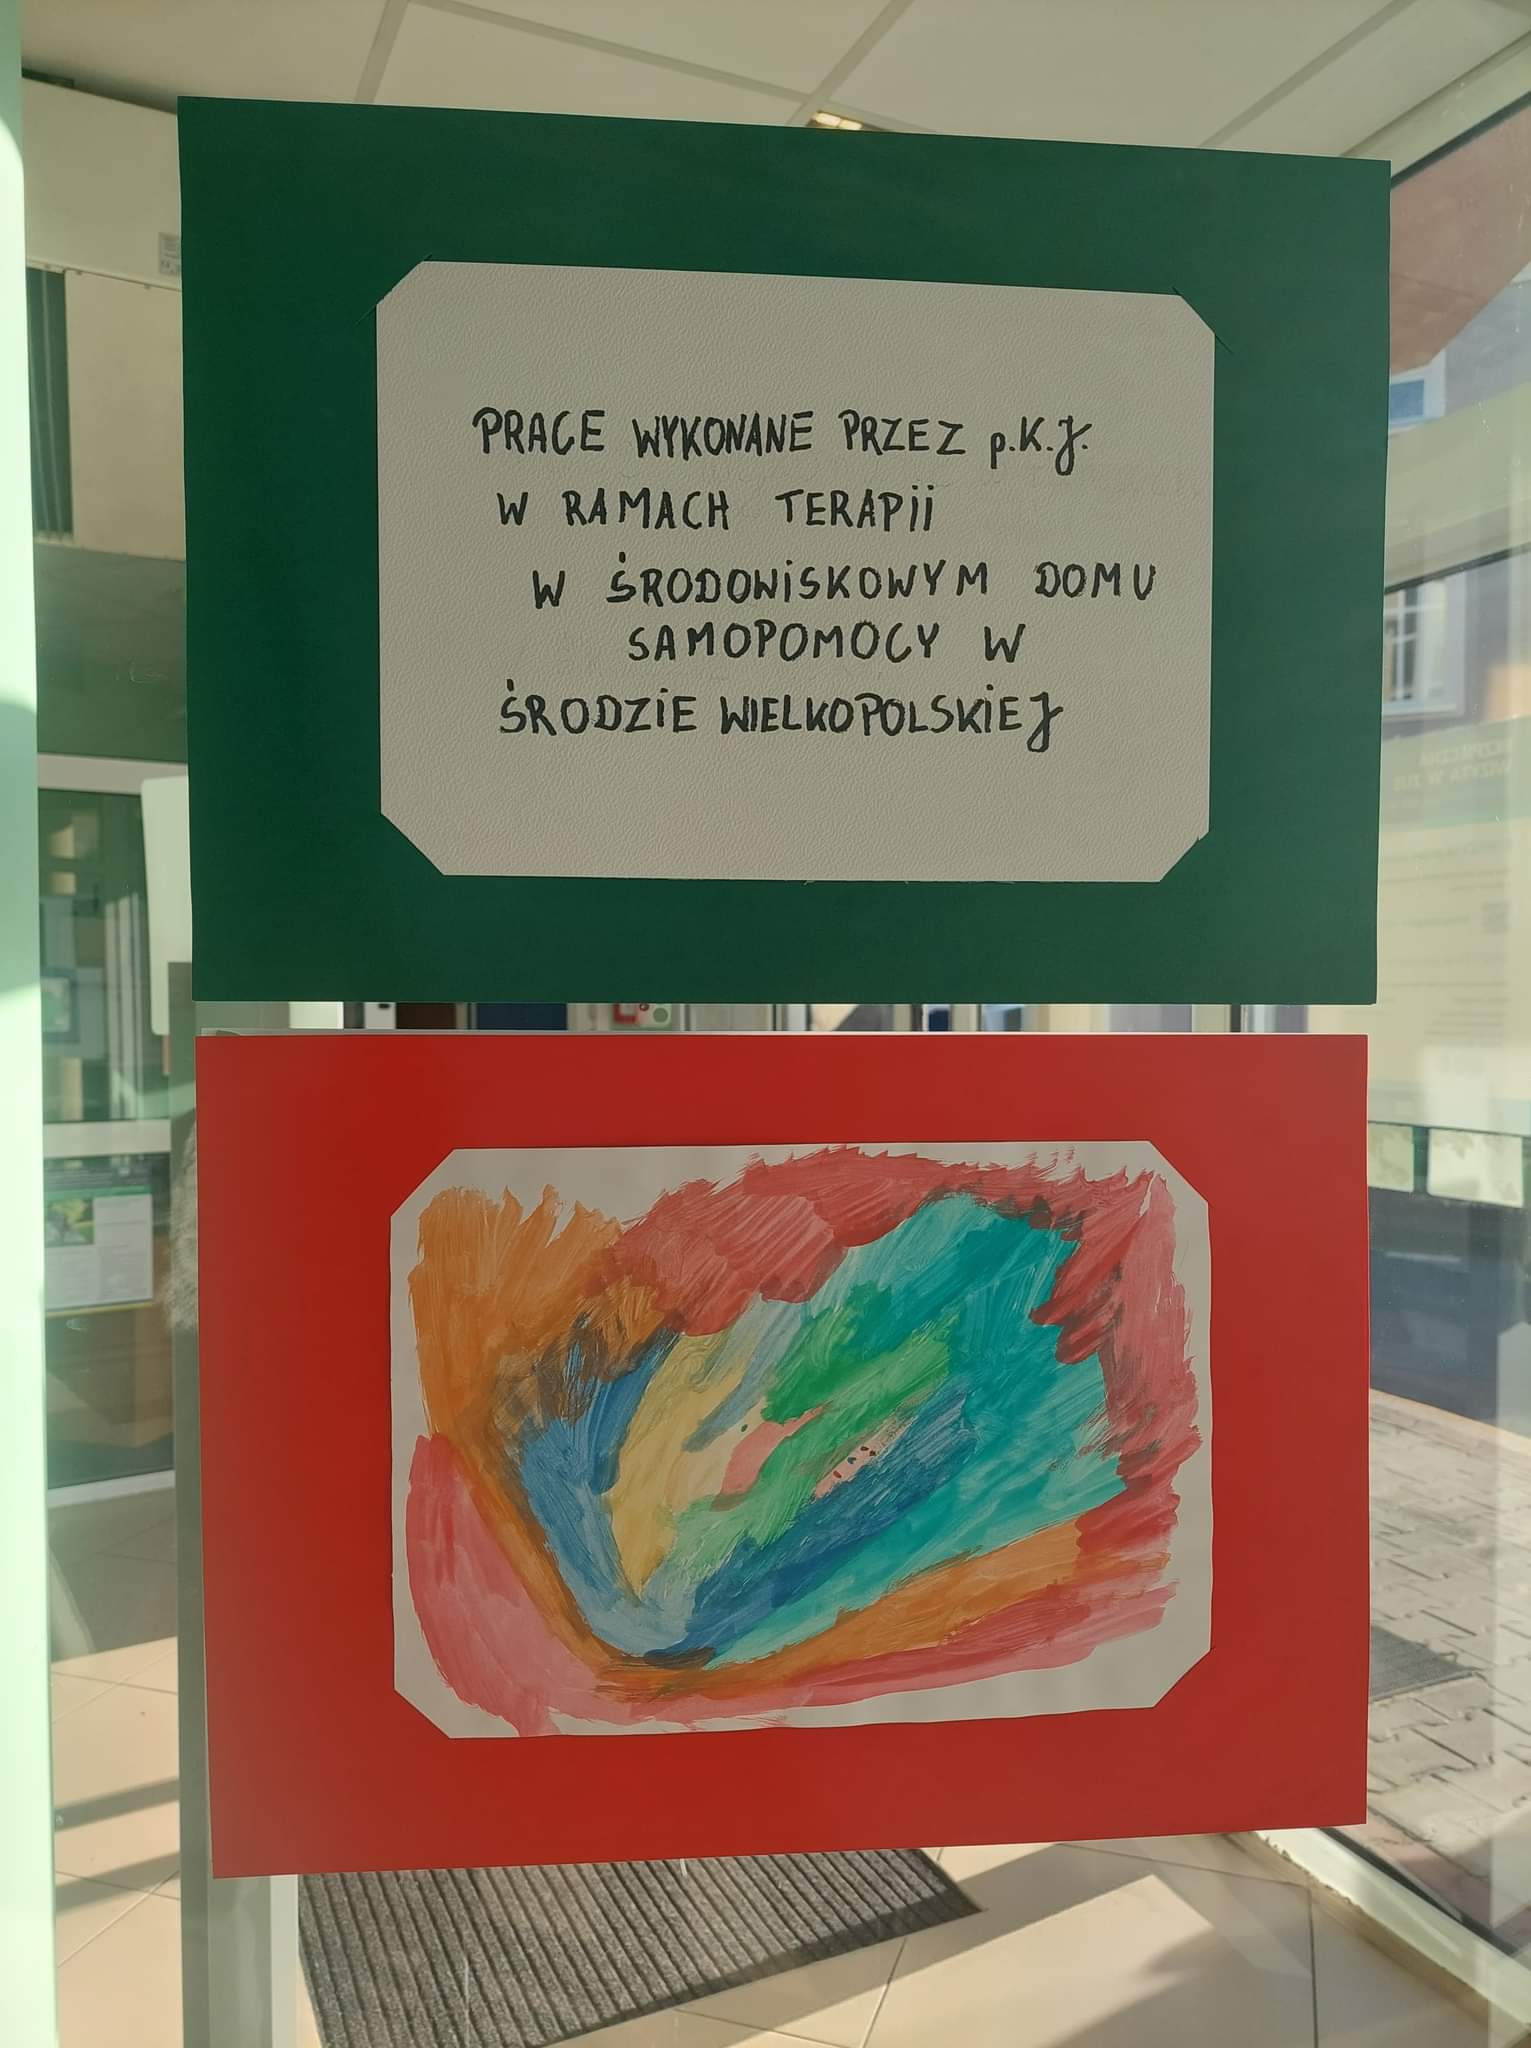 PRACE WYKONANE PRZEZ p.K.J.
W RAMACH TERAPii
W ŚRODOWiSKOWYM DOMU
SAMOPOMOCY W
ŚRODZiE WIELKOPOLSKiEJ